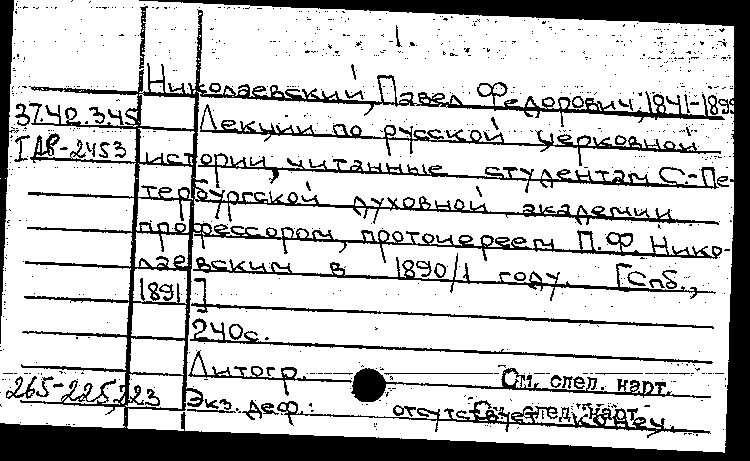 1.
Николаевский, Павел Федорович, 1841-1899
37.42.345 Лекции по русской церковной
I ДВ-2453 истории, читанные студентам С.-Пе-
тербургской духовной академии
профессором, протоиереем П.Ф. Нико-
лаевским в 1890/1 году. [Спб.,
1891]
240с.
Литогр. См. след. карт.
265-225,223 Экз. деф.: отсутствует конец.
См. след. карт.